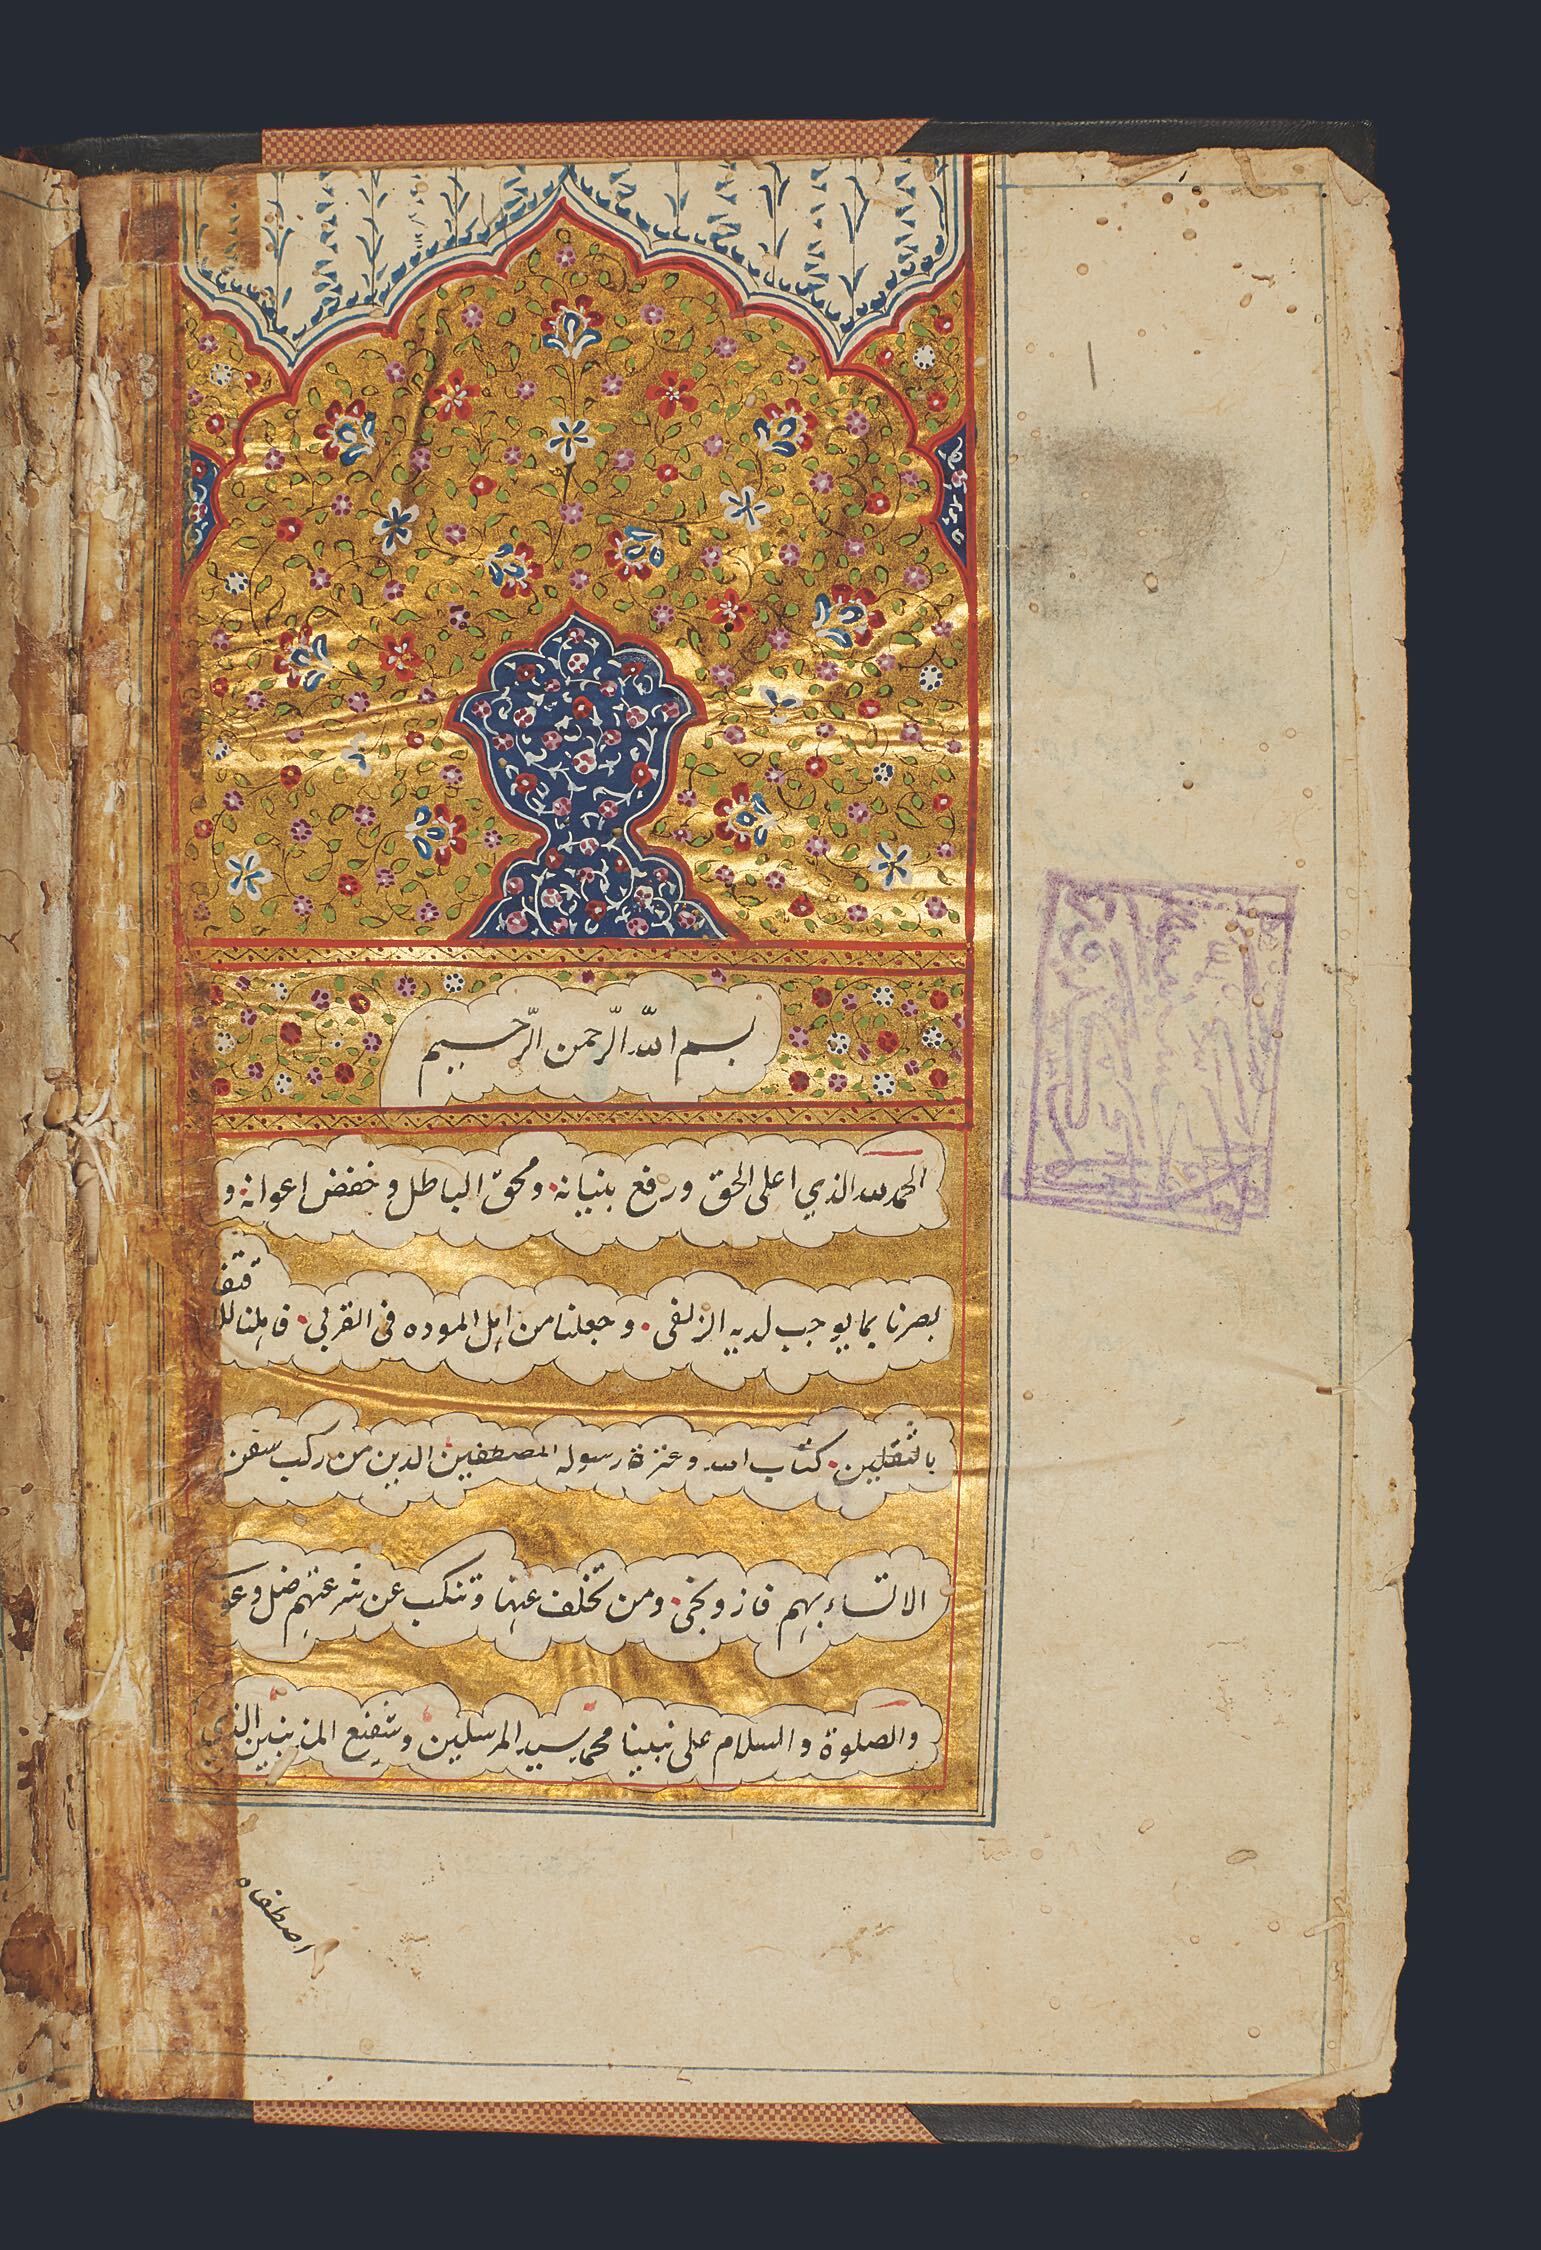 بسم الله الرّحمن الرّحيم
الحمد لله الذي اعلى الحق ورفع بنيانه ومحق الباطل وخفض اعوانه و
بصرنا بما يوجب لديه الزلفى وجعلنا من اهل الموده في القربى فاهلنا
بالثقلين كتاب الله وعترة رسوله المصطفين الذين من ركب سفن
الالتساء بهم فاز ونجى ومن تخلف عنها وتنكب عن شرعتهم ضل و
والصلوة والسلام على نبينا محمد سيد المرسلين وشفيع المذنبين الذي
اصطفاه